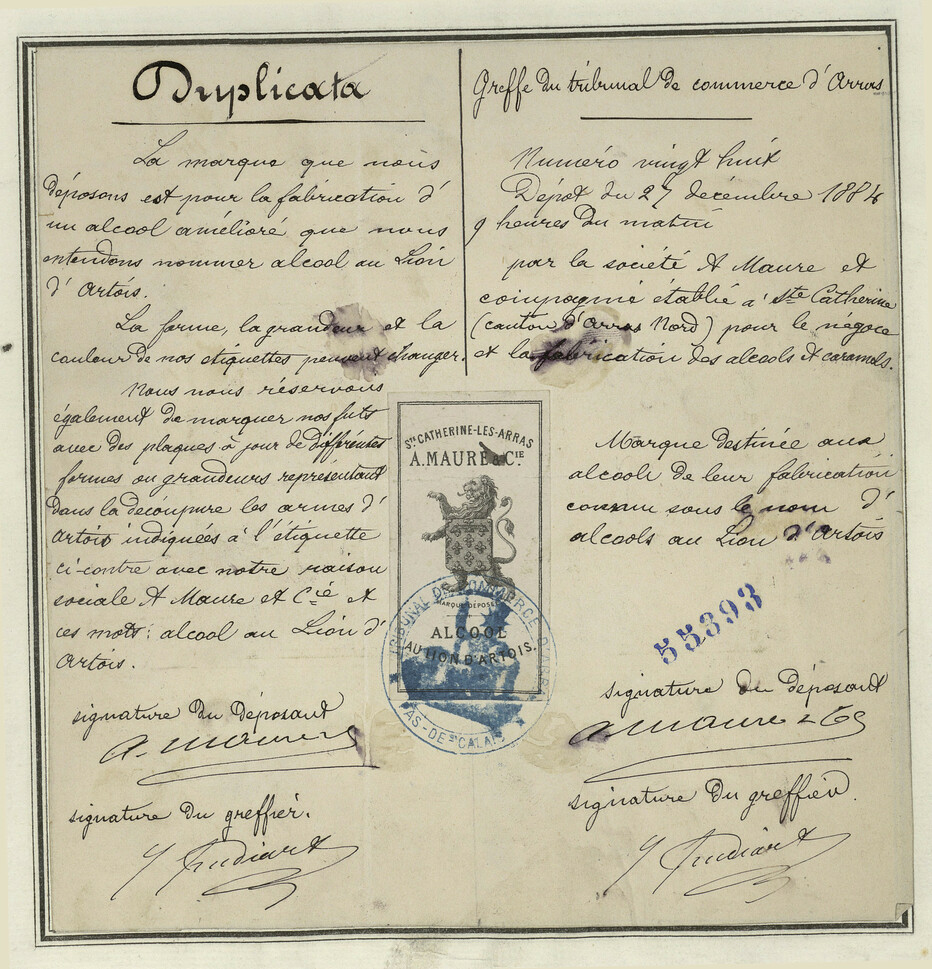 Duplicata
La marque que nous
déposons est pour la fabrication d'
un alcool amélioré que nous
entendons nommer alcool au Lion
d'Artois.
La forme, la grandeur et la
couleur de nos étiquettes peuvent changer.
Nous nous réservons
également de marquer nos futs
avec des plaques à jour de différentes
formes ou grandeurs representant
dans la découpure les armes d'
Artois indiquées à l'étiquette
ci-contre avec notre raison
sociale A Maure et Cie et
ces mots: alcool au Lion d'
Artois.
signature du Déposant
signature du greffier.
Greffe du tribunal de commerce d'Arras
Numéro vingt huit
Dépot du 27 décembre 1884
9 heures du matin
par la société A Maure et
compagnie établie à Ste Catherine
(canton d'Arras Nord) pour le négoce
et la fabrication des alcools et caramels.
Marque destinée aux
alcools de leur fabrication
connu sous le nom d'
alcools au Lion d'Artois
55393
signature du Déposant
A. Maure & Cie
signature du greffier.
STE CATHERINE-LES-ARRAS
A. MAURE & CIE
MARQUE DÉPOSÉE
ALCOOL
AU LION D'ARTOIS.
TRIBUNAL DE COMMERCE D'ARRAS
PAS-DE-CALAIS